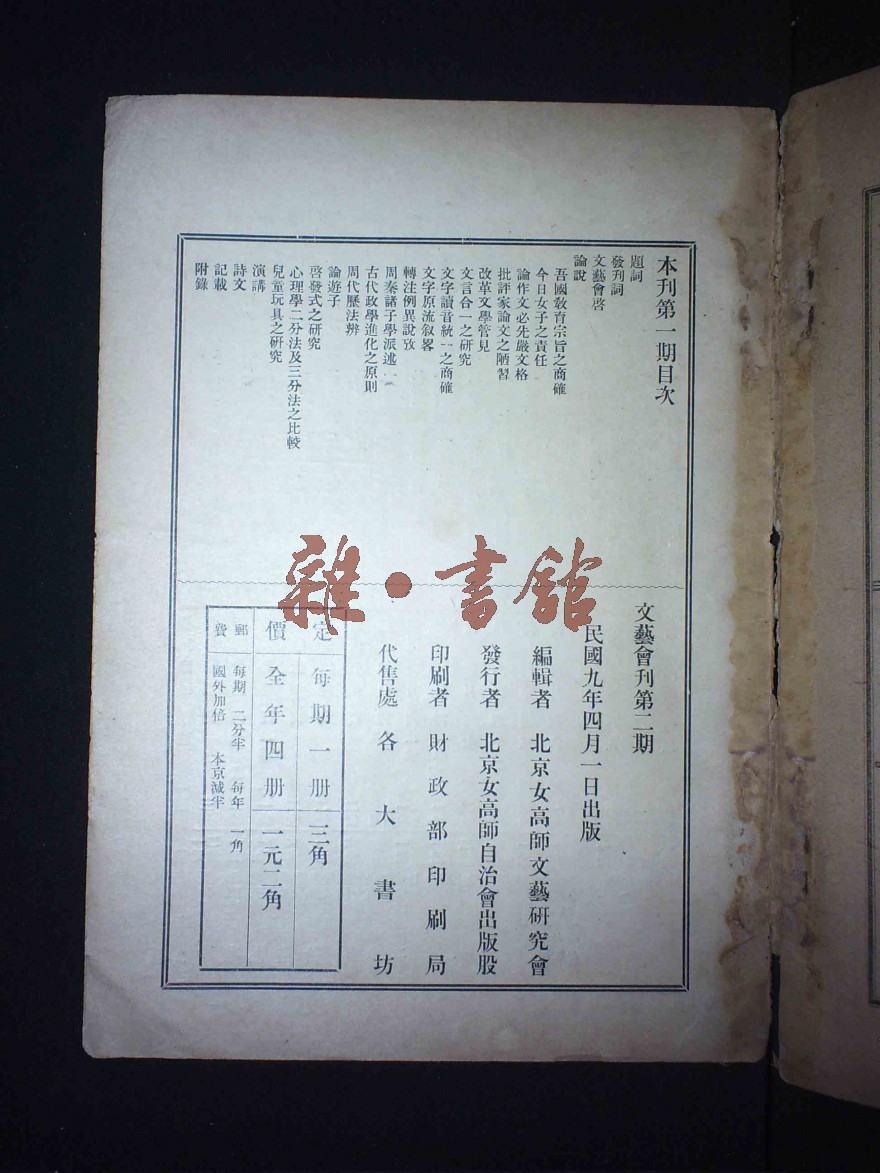 本刊第一期目次
題詞
發刊詞
文藝會啓
論說
吾國敎育宗旨之商確
今日女子之責任
論作文必先嚴文格
批評家論文之陋習
改革文學管見
文言合一之硏究
文字讀音統一之商確
文字原流叙畧
轉注例異說攷
周秦諸子學派述一
古代政學進化之原則
周代歷法辨
論遊子
啓發式之硏究
心理學二分法及三分法之比較
兒童玩具之硏究
演講
詩文
記載
附錄
雜·書館
文藝會刊第二期
民國九年四月一日出版
編輯者 北京女高師文藝硏究會
發行者 北京女高師自治會出版股
印刷者 財政部印刷局
代售處 各大書坊
定價
每期一册 三角
全年四册 一元二角
郵費
每期 二分半 每年 一角
國外加倍 本京減半